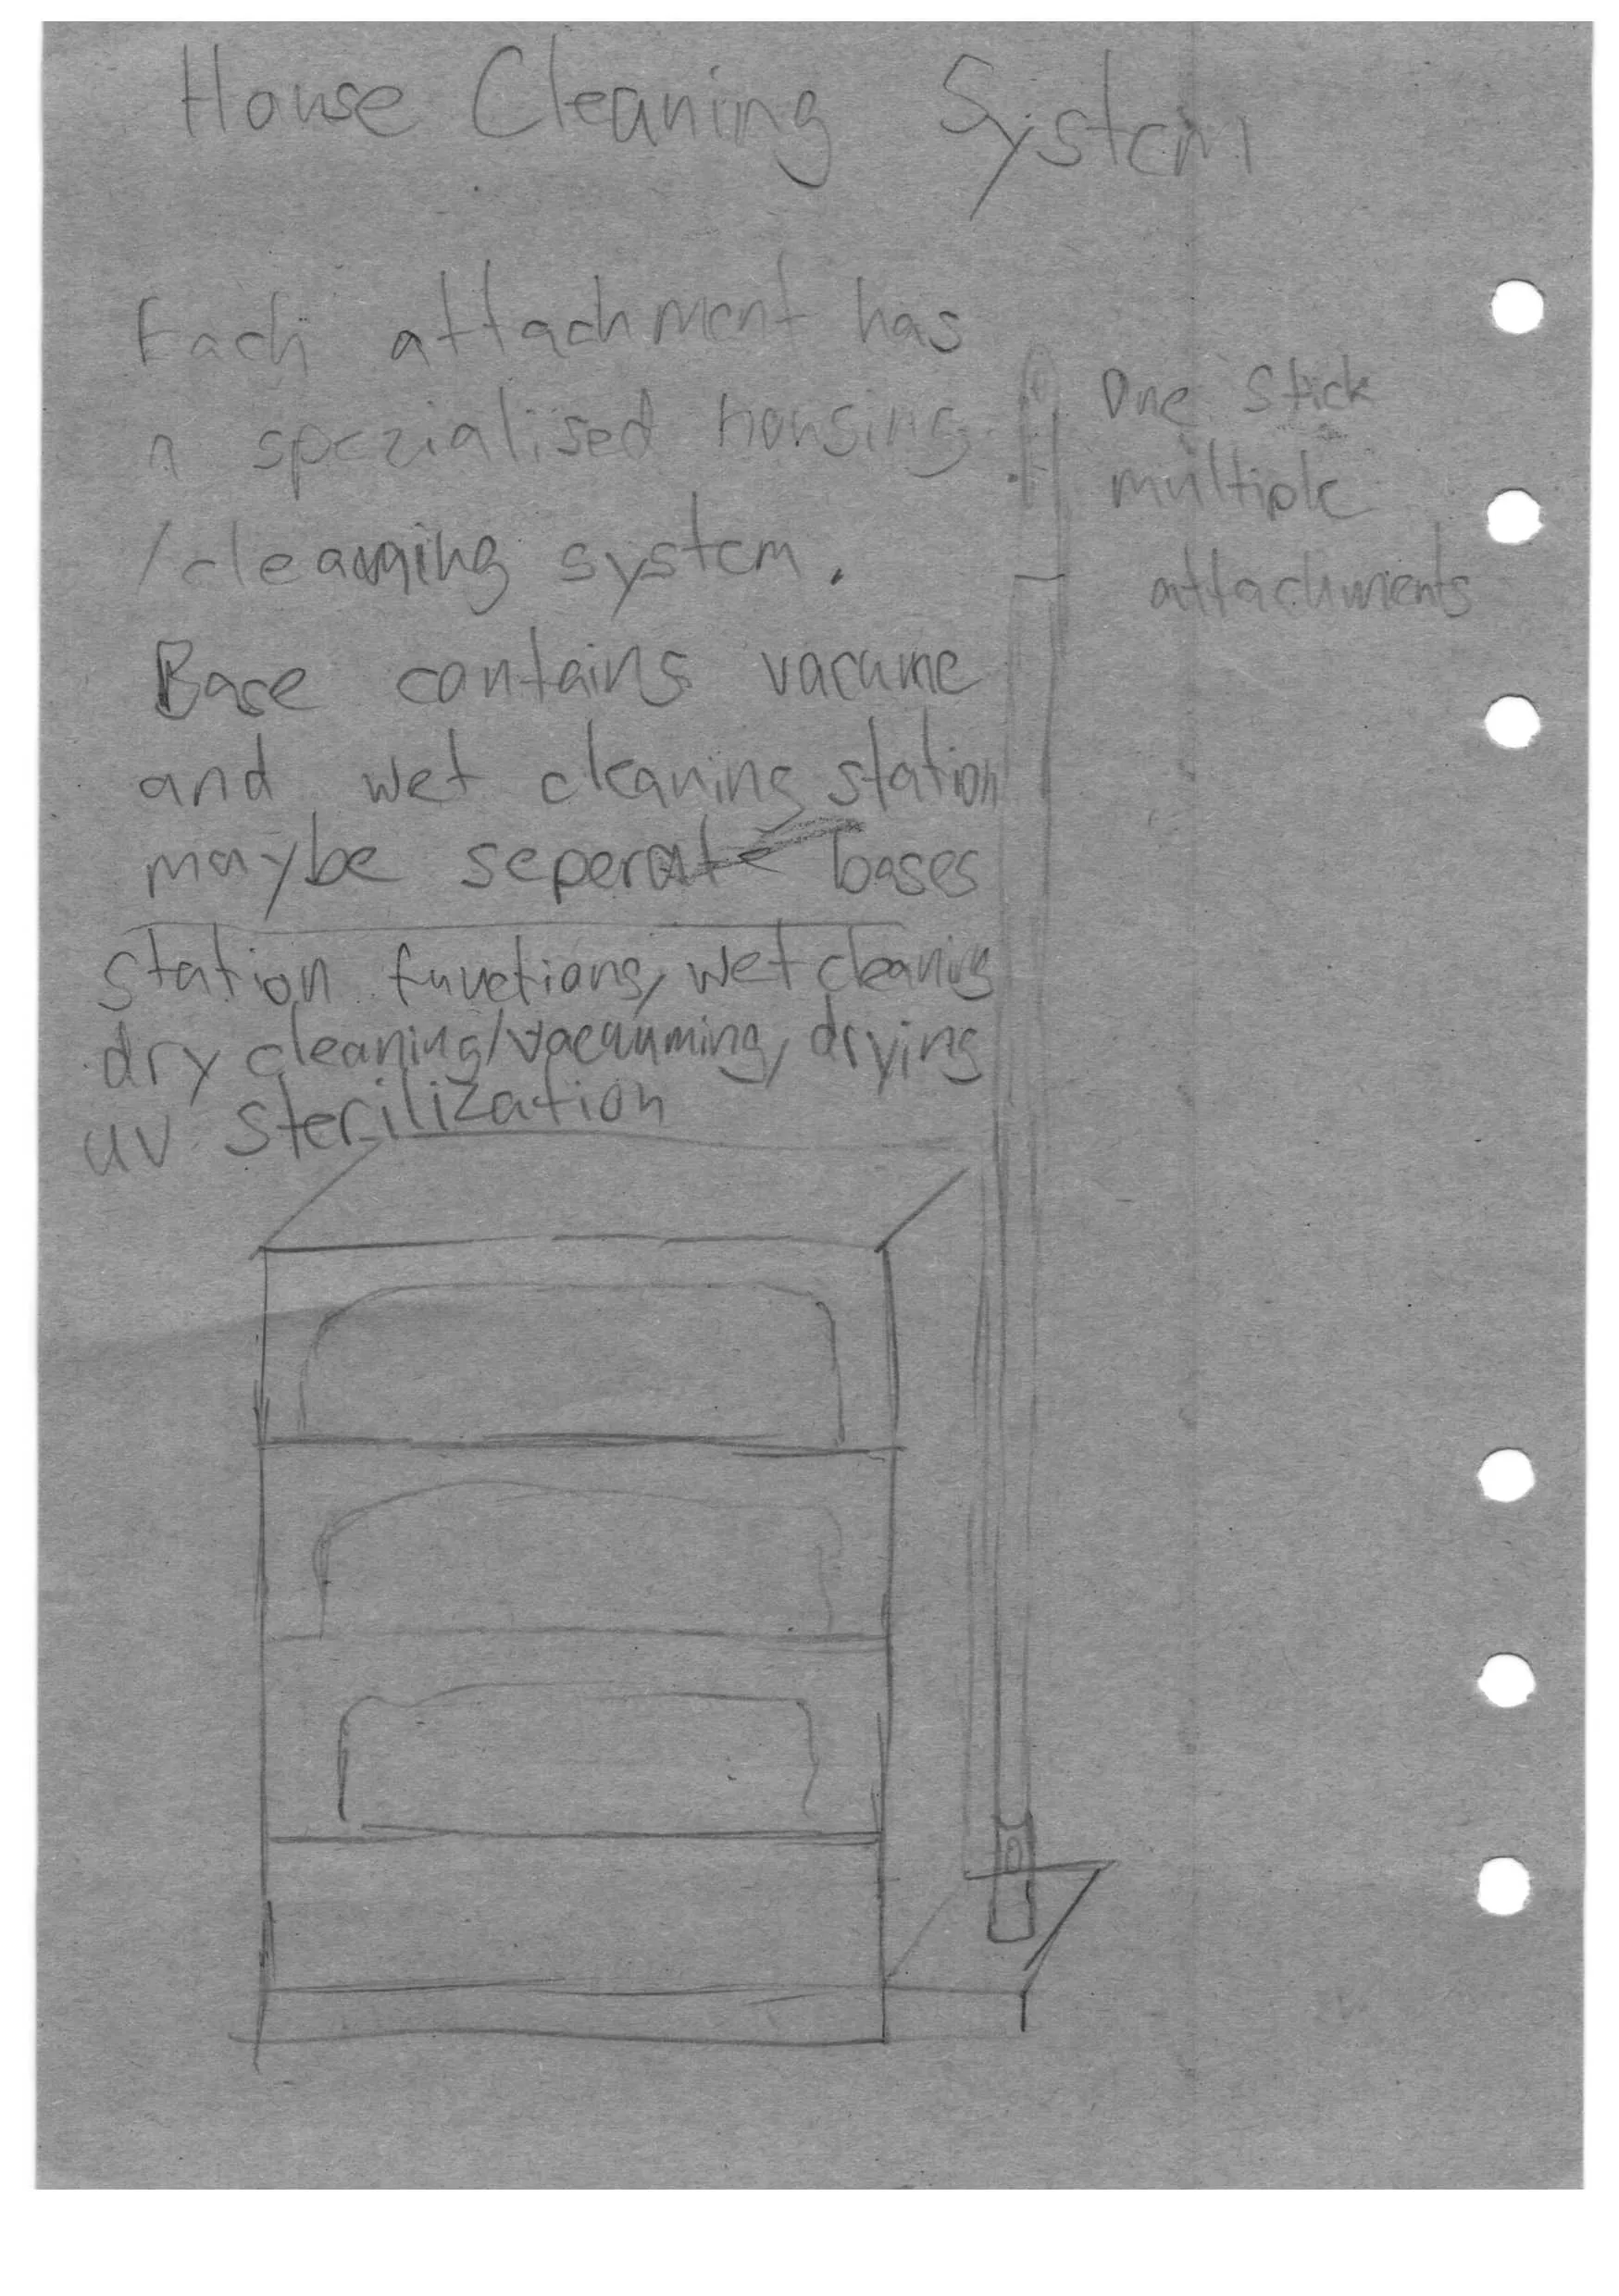 House Cleaning System
Each attachment has
a spezialised housing
/cleaning system.
One Stick
multiple
attachments
Base contains vacume
and wet cleaning station
maybe seperate bases
station functions, wet cleaning
dry cleaning/vacuuming, drying
UV sterilization